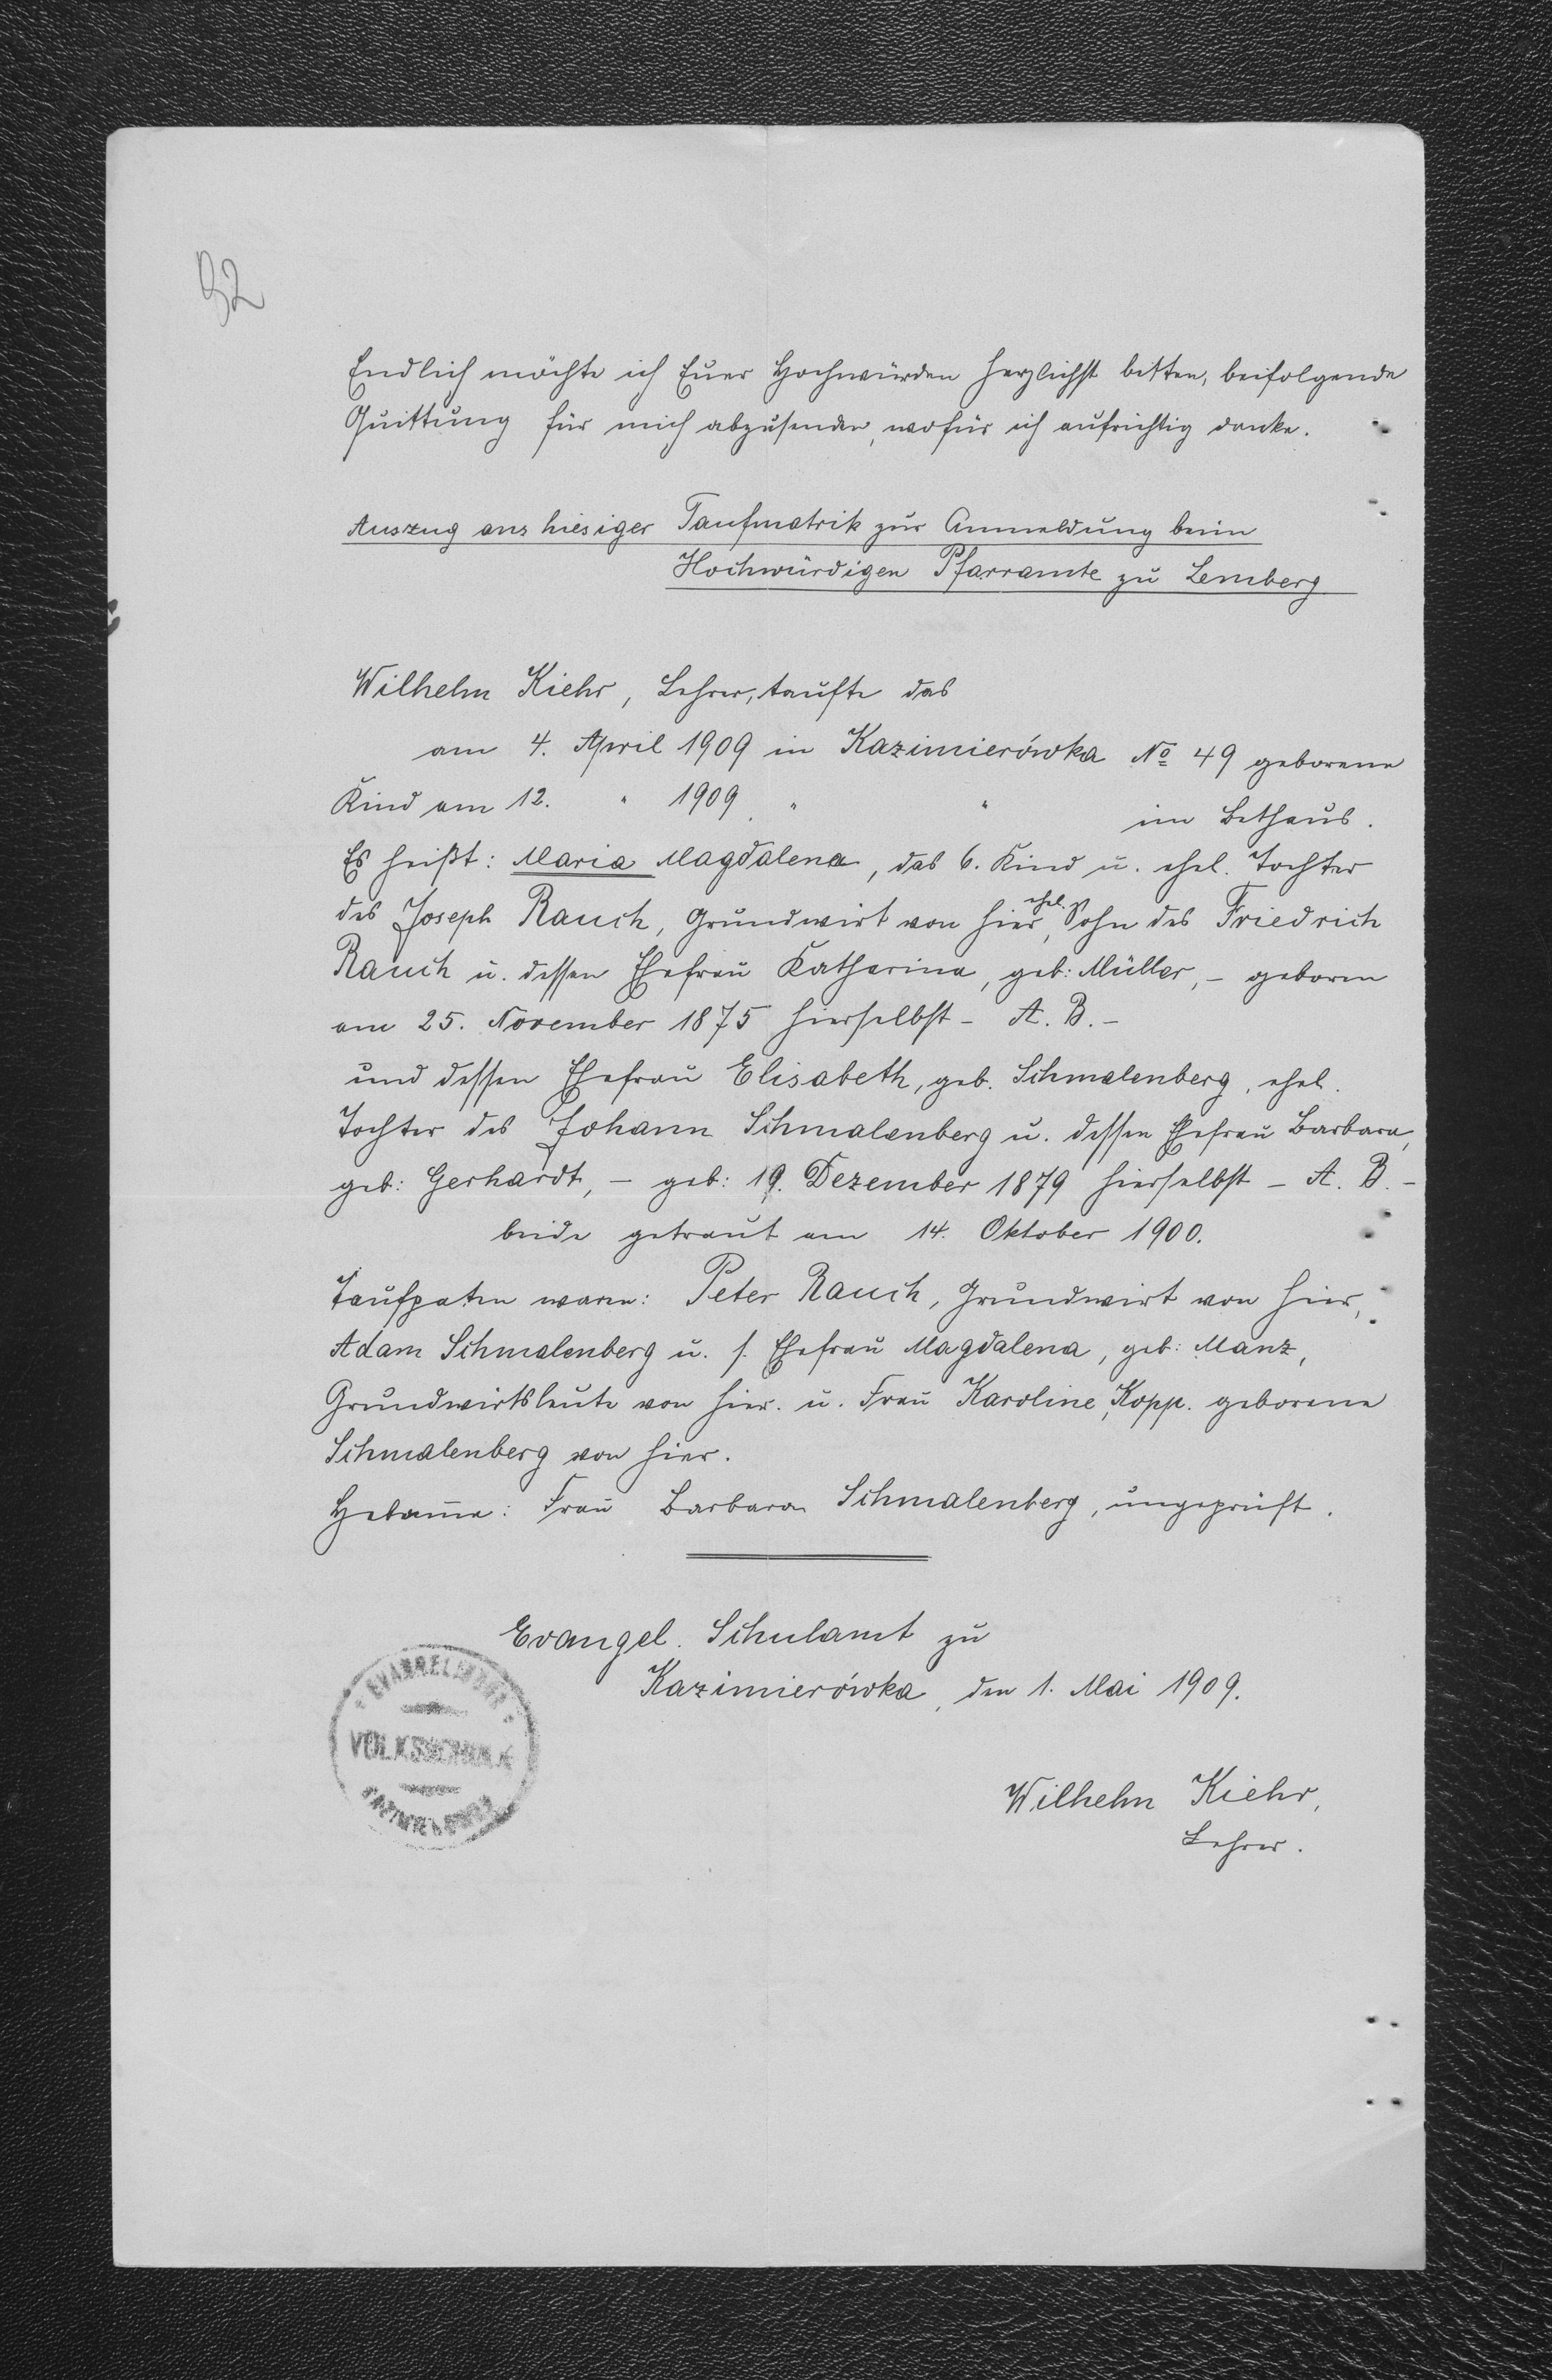 92
Endlich möchte ich Euer Hochwürden herzlichst bitten, beifolgende
Quittung für mich abzusenden, wofür ich aufrichtig danke.
Auszug aus hiesiger Taufmatrik zur Anmeldung beim
Hochwürdigen Pfarramte zu Lemberg
Wilhelm Kiehr, Lehrer, taufte das
am 4. April 1909 in Kazimierówka No 49 geborene
Kind am 12. " 1909 " " im Bethaus.
Es heißt: Maria Magdalena, das 6. Kind u. ehel. Tochter
des Joseph Rauch, Grundwirt von hier, ehel. Sohn des Friedrich
Rauch u. dessen Ehefrau Katharina, geb: Müller, – geboren
am 25. November 1875 hierselbst – A. B. –
und dessen Ehefrau Elisabeth, geb. Schmalenberg, ehel.
Tochter des Johann Schmalenberg u. dessen Ehefrau Barbara,
geb: Gerhardt, – geb: 19. Dezember 1879 hierselbst – A. B. –
beide getraut am 14. Oktober 1900.
Taufpaten waren: Peter Rauch, Grundwirt von hier,
Adam Schmalenberg u. s. Ehefrau Magdalena, geb: Manz,
Grundwirtsleute von hier. u. Frau Karoline Kopp. geborene
Schmalenberg von hier.
Hebam̄e: Frau Barbara Schmalenberg, ungeprüft.
Evangel. Schulamt zu
Kazimierówka, den 1. Mai 1909.
EVANGELISCHE
VOLKSSCHULE
Wilhelm Kiehr,
Lehrer.